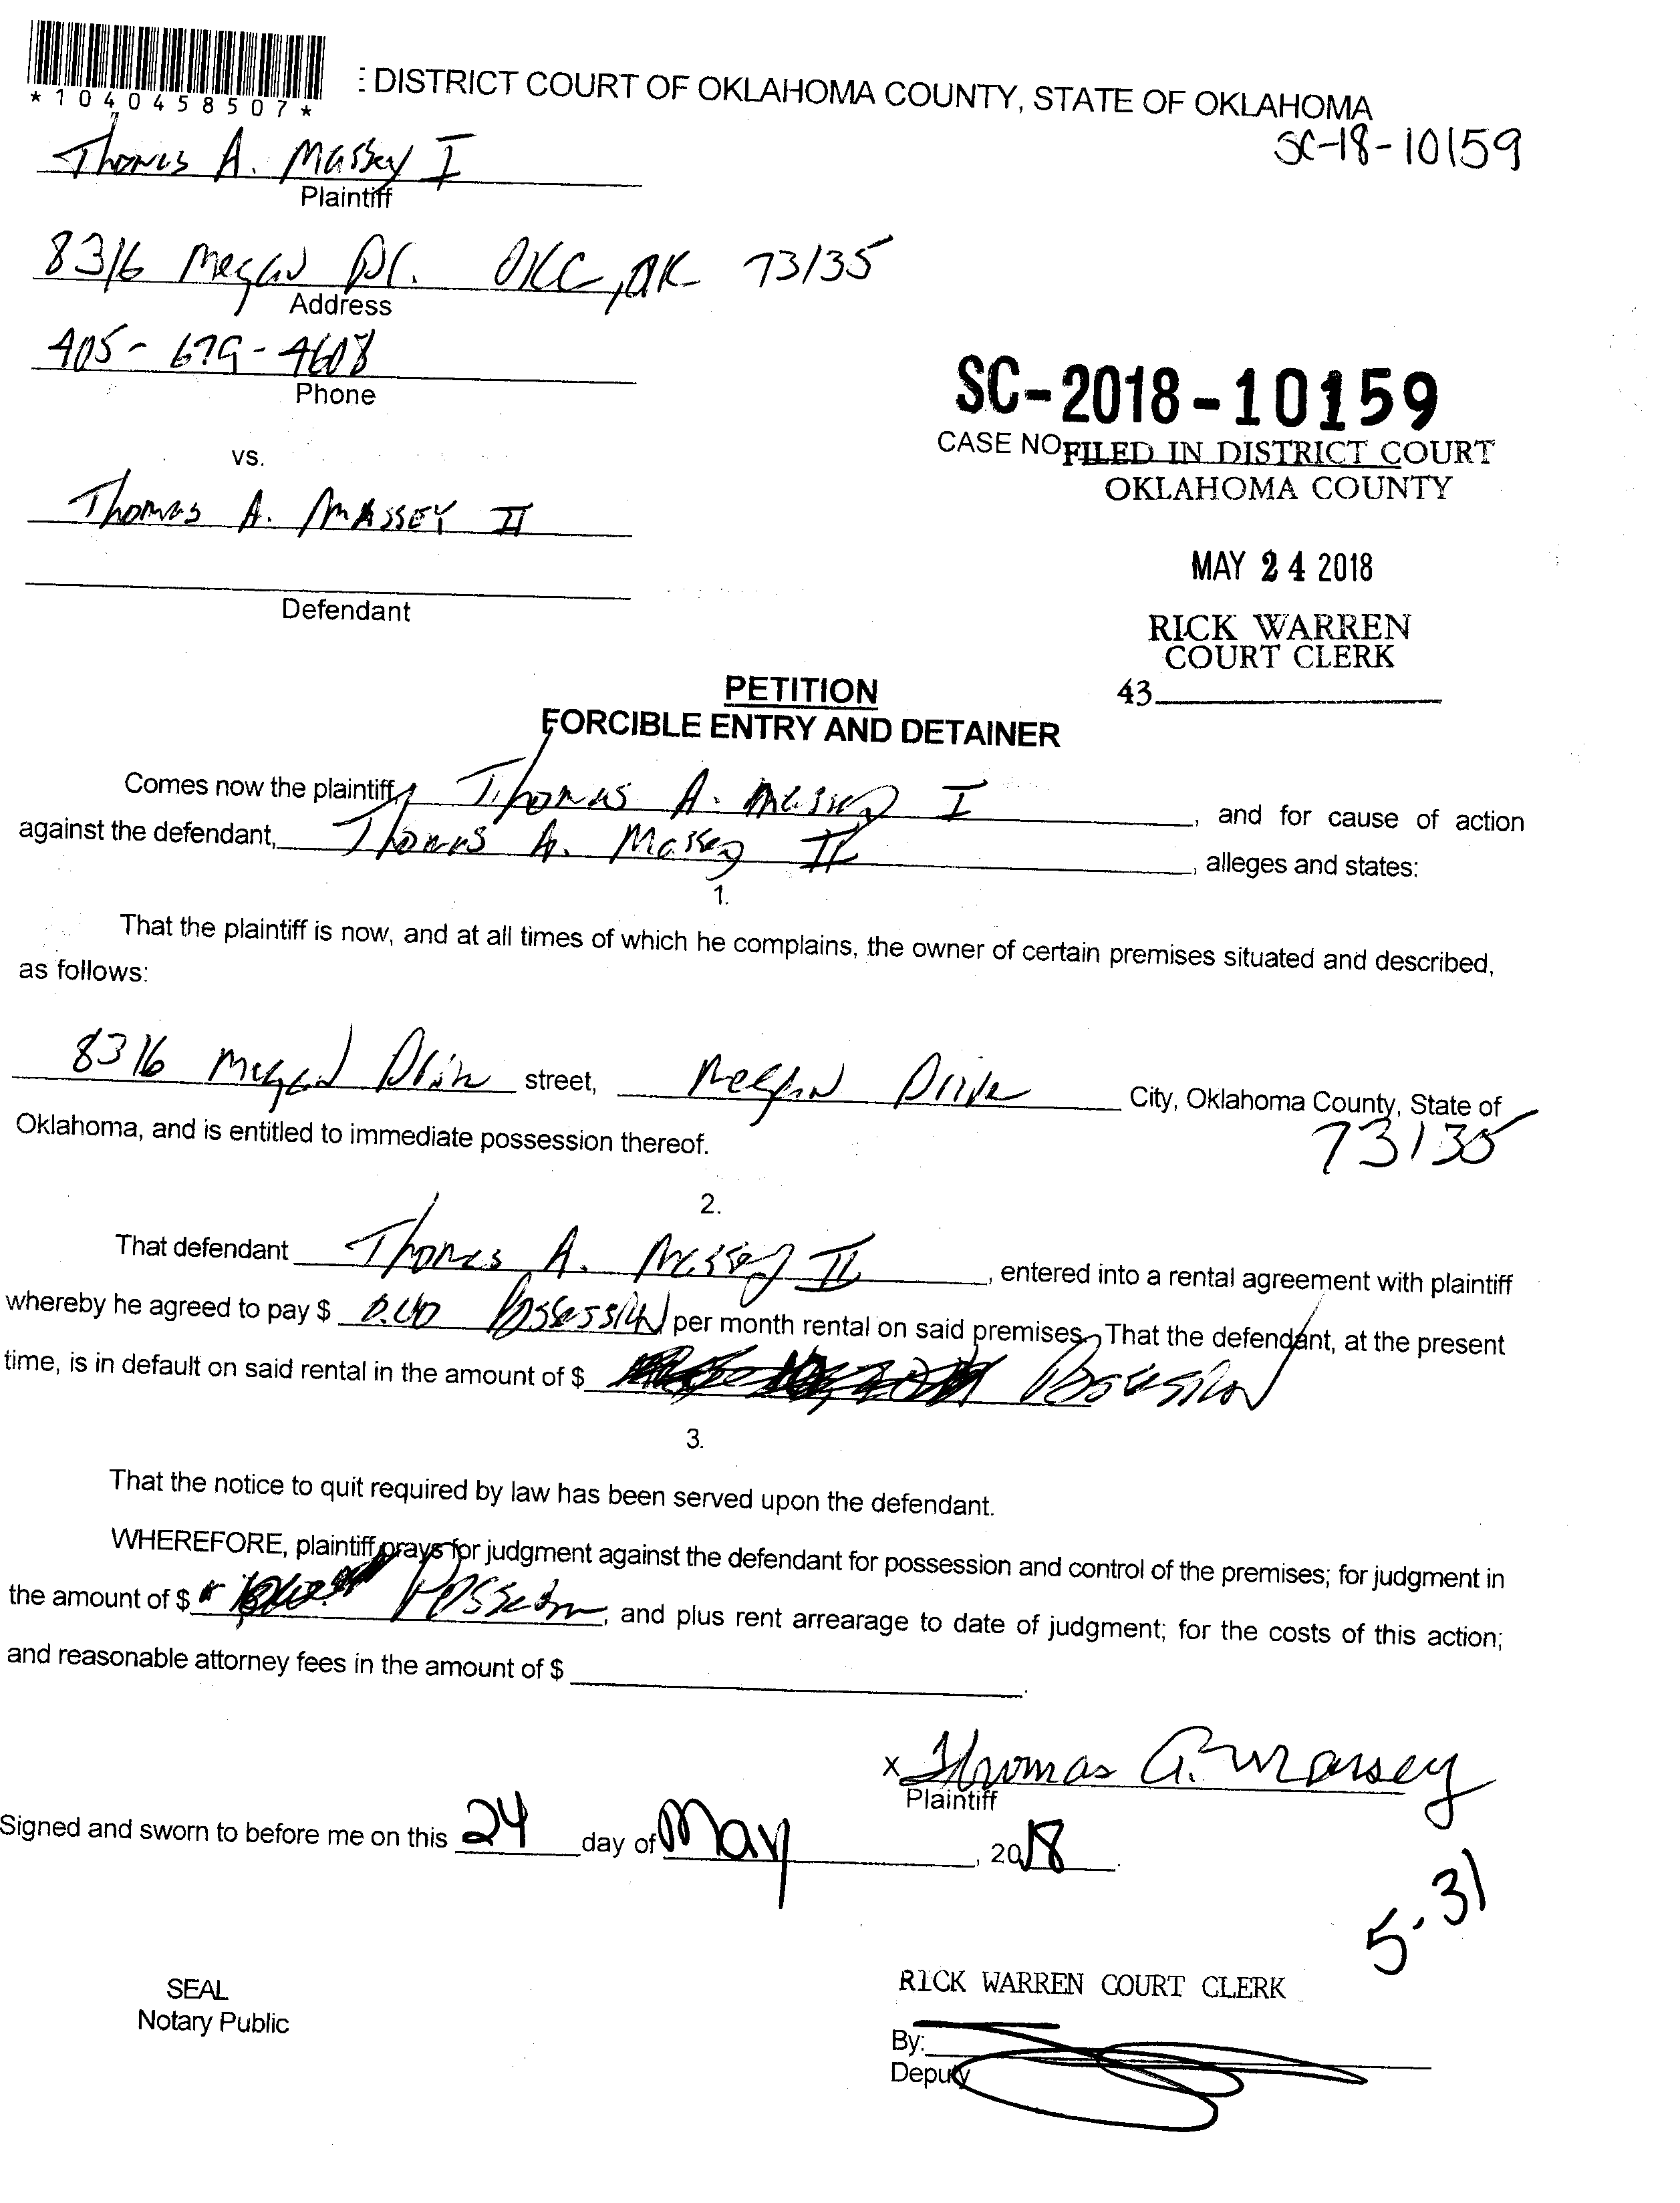 *1040458507*
: DISTRICT COURT OF OKLAHOMA COUNTY, STATE OF OKLAHOMA
SC-18-10159
Thomas A. Massey I
Plaintiff
8316 Megan Dr. OKC, OK 73135
Address
405-679-4608
Phone
SC-2018-10159
CASE NO
FILED IN DISTRICT COURT
OKLAHOMA COUNTY
vs.
Thomas A. MASSEY II
Defendant
MAY 24 2018
RICK WARREN
COURT CLERK
43
PETITION
FORCIBLE ENTRY AND DETAINER
Comes now the plaintiff, Thomas A. Massey I, and for cause of action
against the defendant, Thomas A. Massey II, alleges and states:
1.
That the plaintiff is now, and at all times of which he complains, the owner of certain premises situated and described,
as follows:
8316 Megan Drive street, Megan Drive City, Oklahoma County, State of
Oklahoma, and is entitled to immediate possession thereof. 73135
2.
That defendant Thomas A. Massey II, entered into a rental agreement with plaintiff
whereby he agreed to pay $ 0.00 Possession per month rental on said premises. That the defendant, at the present
time, is in default on said rental in the amount of $ Possession
3.
That the notice to quit required by law has been served upon the defendant.
WHEREFORE, plaintiff prays for judgment against the defendant for possession and control of the premises; for judgment in
the amount of $ , and plus rent arrearage to date of judgment; for the costs of this action;
and reasonable attorney fees in the amount of $ .
x Thomas A. Massey
Plaintiff
Signed and sworn to before me on this 24 day of May, 2018.
5-31
SEAL
Notary Public
RICK WARREN COURT CLERK
By:
Deputy